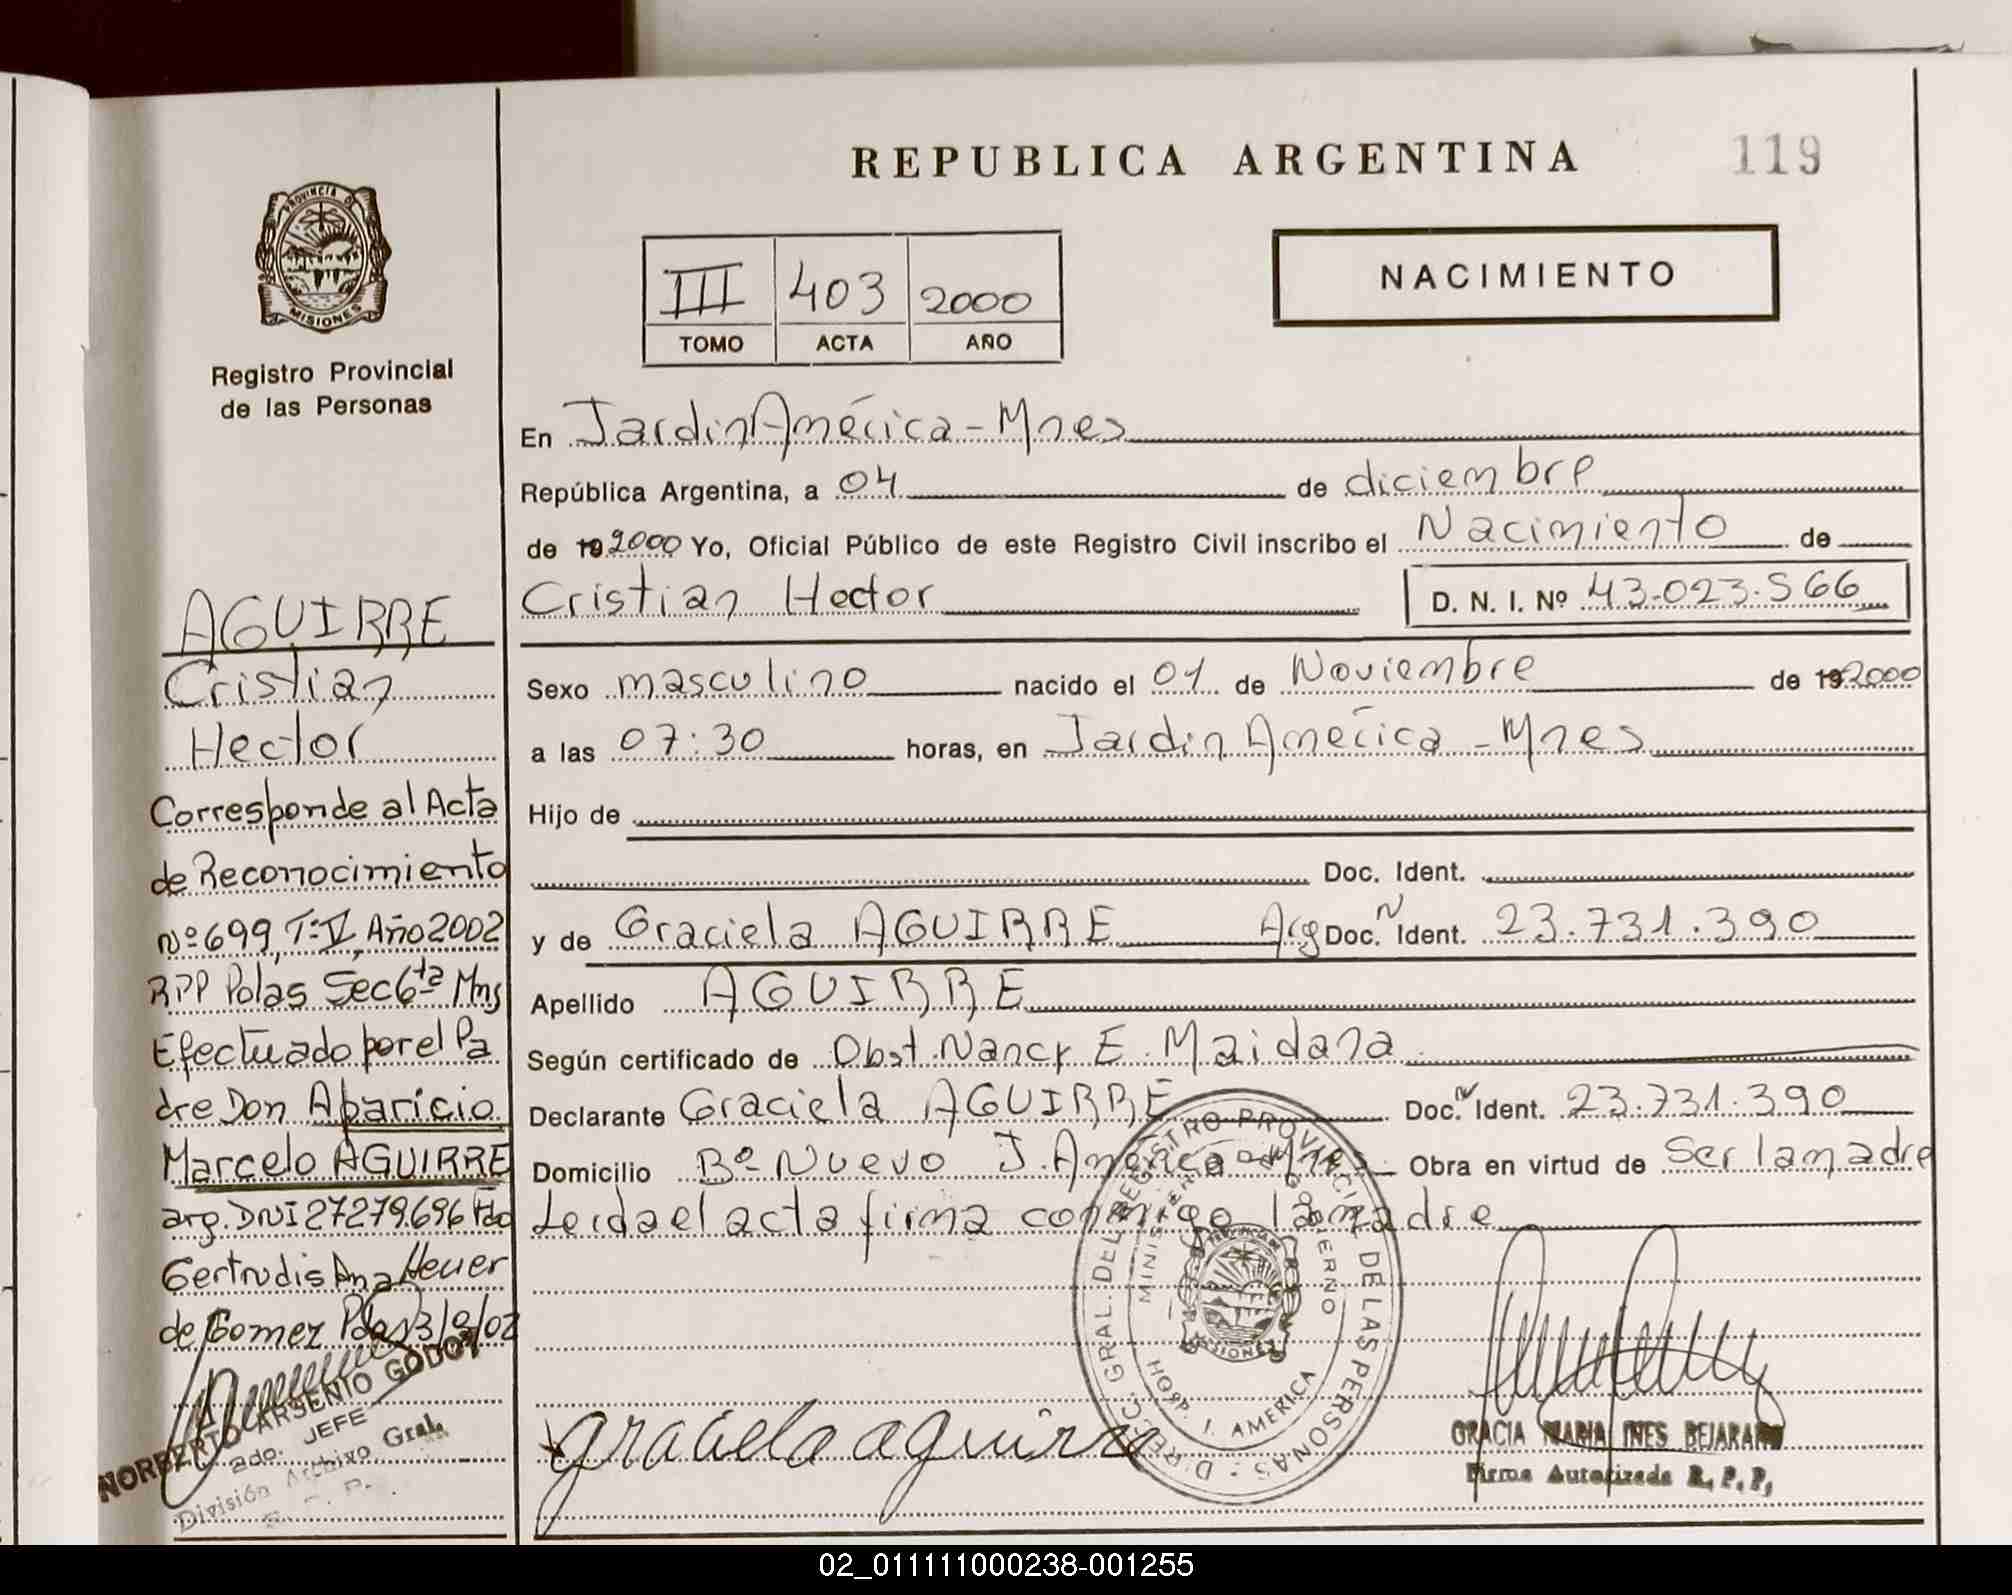 REPUBLICA ARGENTINA
119
PROVINCIA DE
MISIONES
Registro Provincial
de las Personas
III 403 2000
TOMO ACTA AÑO
NACIMIENTO
En Jardin América - Mnes
República Argentina, a 04 de diciembre
de 19 2000 Yo, Oficial Público de este Registro Civil inscribo el Nacimiento de
Cristian Hector
D. N. I. Nº 43.023.566
Sexo masculino nacido el 01 de Noviembre de 19 2000
a las 07:30 horas, en Jardin América - Mnes
Hijo de
Doc. Ident.
y de Graciela AGUIRRE Arg Doc. N Ident. 23.731.390
Apellido AGUIRRE
Según certificado de Obst. Nancy E. Maidana
Declarante Graciela AGUIRRE Doc. N Ident. 23.731.390
Domicilio Bº Nuevo J. América - Mnes Obra en virtud de Ser la madre
Leida el acta firma conmigo la madre
AGUIRRE
Cristian
Hector
Corresponde al Acta
de Reconocimiento
Nº 699, T: V, Año 2002
RPP Pdas Sec 6ta Mns
Efectuado por el Pa
dre Don Aparicio
Marcelo AGUIRRE
arg. DNI 27279.696 Fdo
Gertrudis Ana Heuer
de Gomez Pdas
NORBERTO ARSENIO GODOY
2do. JEFE
División Archivo Gral.
graciela aguirre
DIREC. GRAL. DEL REGISTRO PROVINCIAL DE LAS PERSONAS
MINISTERIO DE GOBIERNO
HOSP. J. AMERICA
MISIONES
GRACIA MARIA INES BEJARANO
Firma Autorizada R. P. P.
02_011111000238-001255